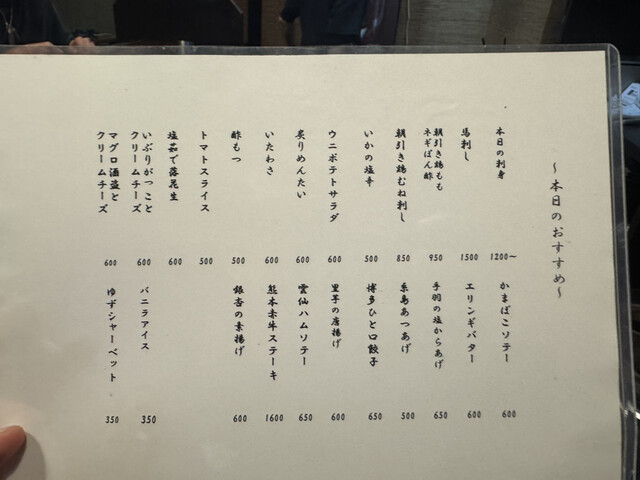 ～本日のおすすめ～
本日の刺身 1200～
馬刺し 1500
朝引き鶏もも
ネギぽん酢 950
朝引き鶏むね刺し 850
いかの塩辛 500
ウニポテトサラダ 600
炙りめんたい 600
いたわさ 600
酢もつ 500
トマトスライス 500
塩茹で落花生 600
いぶりがっこと
クリームチーズ 600
マグロ酒盗と
クリームチーズ 600
かまぼこソテー 600
エリンギバター 600
手羽の塩からあげ 650
糸島あつあげ 500
博多ひと口餃子 650
里芋の唐揚げ 600
雲仙ハムソテー 650
熊本赤牛ステーキ 1600
銀杏の素揚げ 600
バニラアイス 350
ゆずシャーベット 350